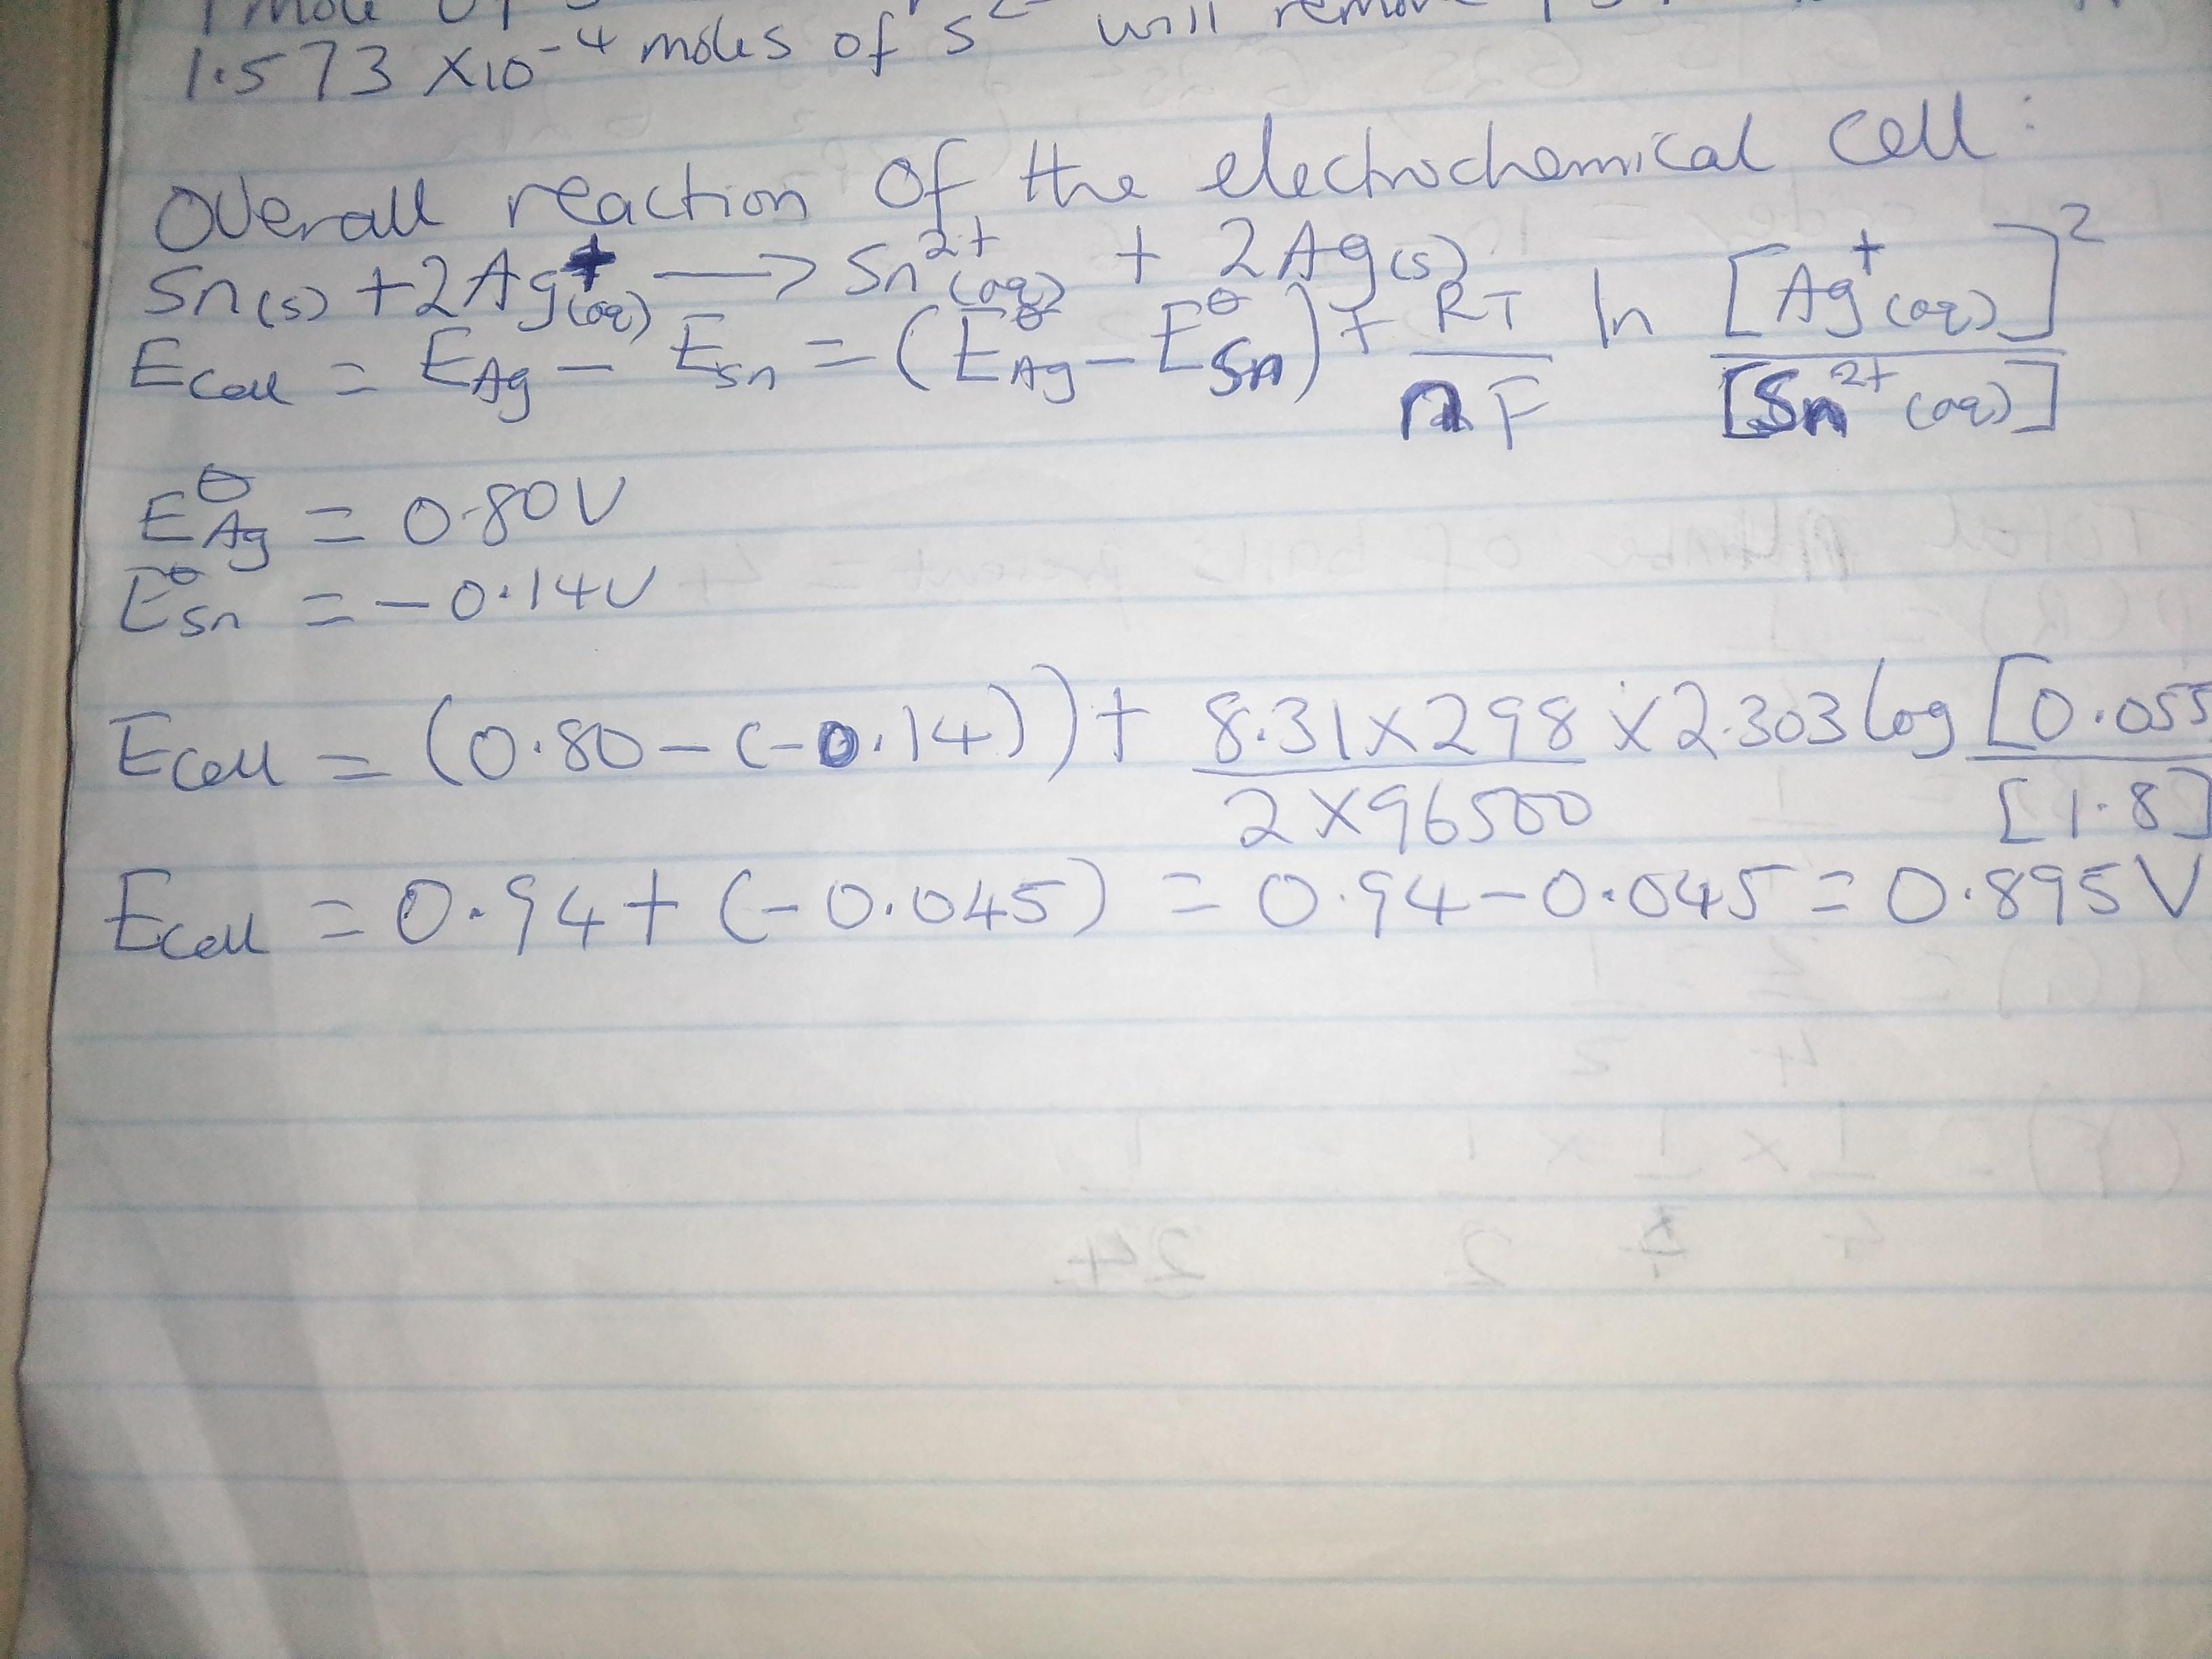 1 mole of S²⁻ will remove
1.573 x10⁻⁴ moles of S
Overall reaction of the electrochemical cell:
Sn(s) + 2Ag⁺(aq) → Sn²⁺(aq) + 2Ag(s)
Ecell = EAg − Esn = (E⊖Ag − E⊖Sn) + RT/nF ln [Ag⁺(aq)]²/[Sn²⁺(aq)]
E⊖Ag = 0.80V
E⊖sn = −0.14V
Ecell = (0.80 − (−0.14)) + 8.31x298/2x96500 x2.303 log [0.055/[1.8]
Ecell = 0.94 + (−0.045) = 0.94 − 0.045 = 0.895V